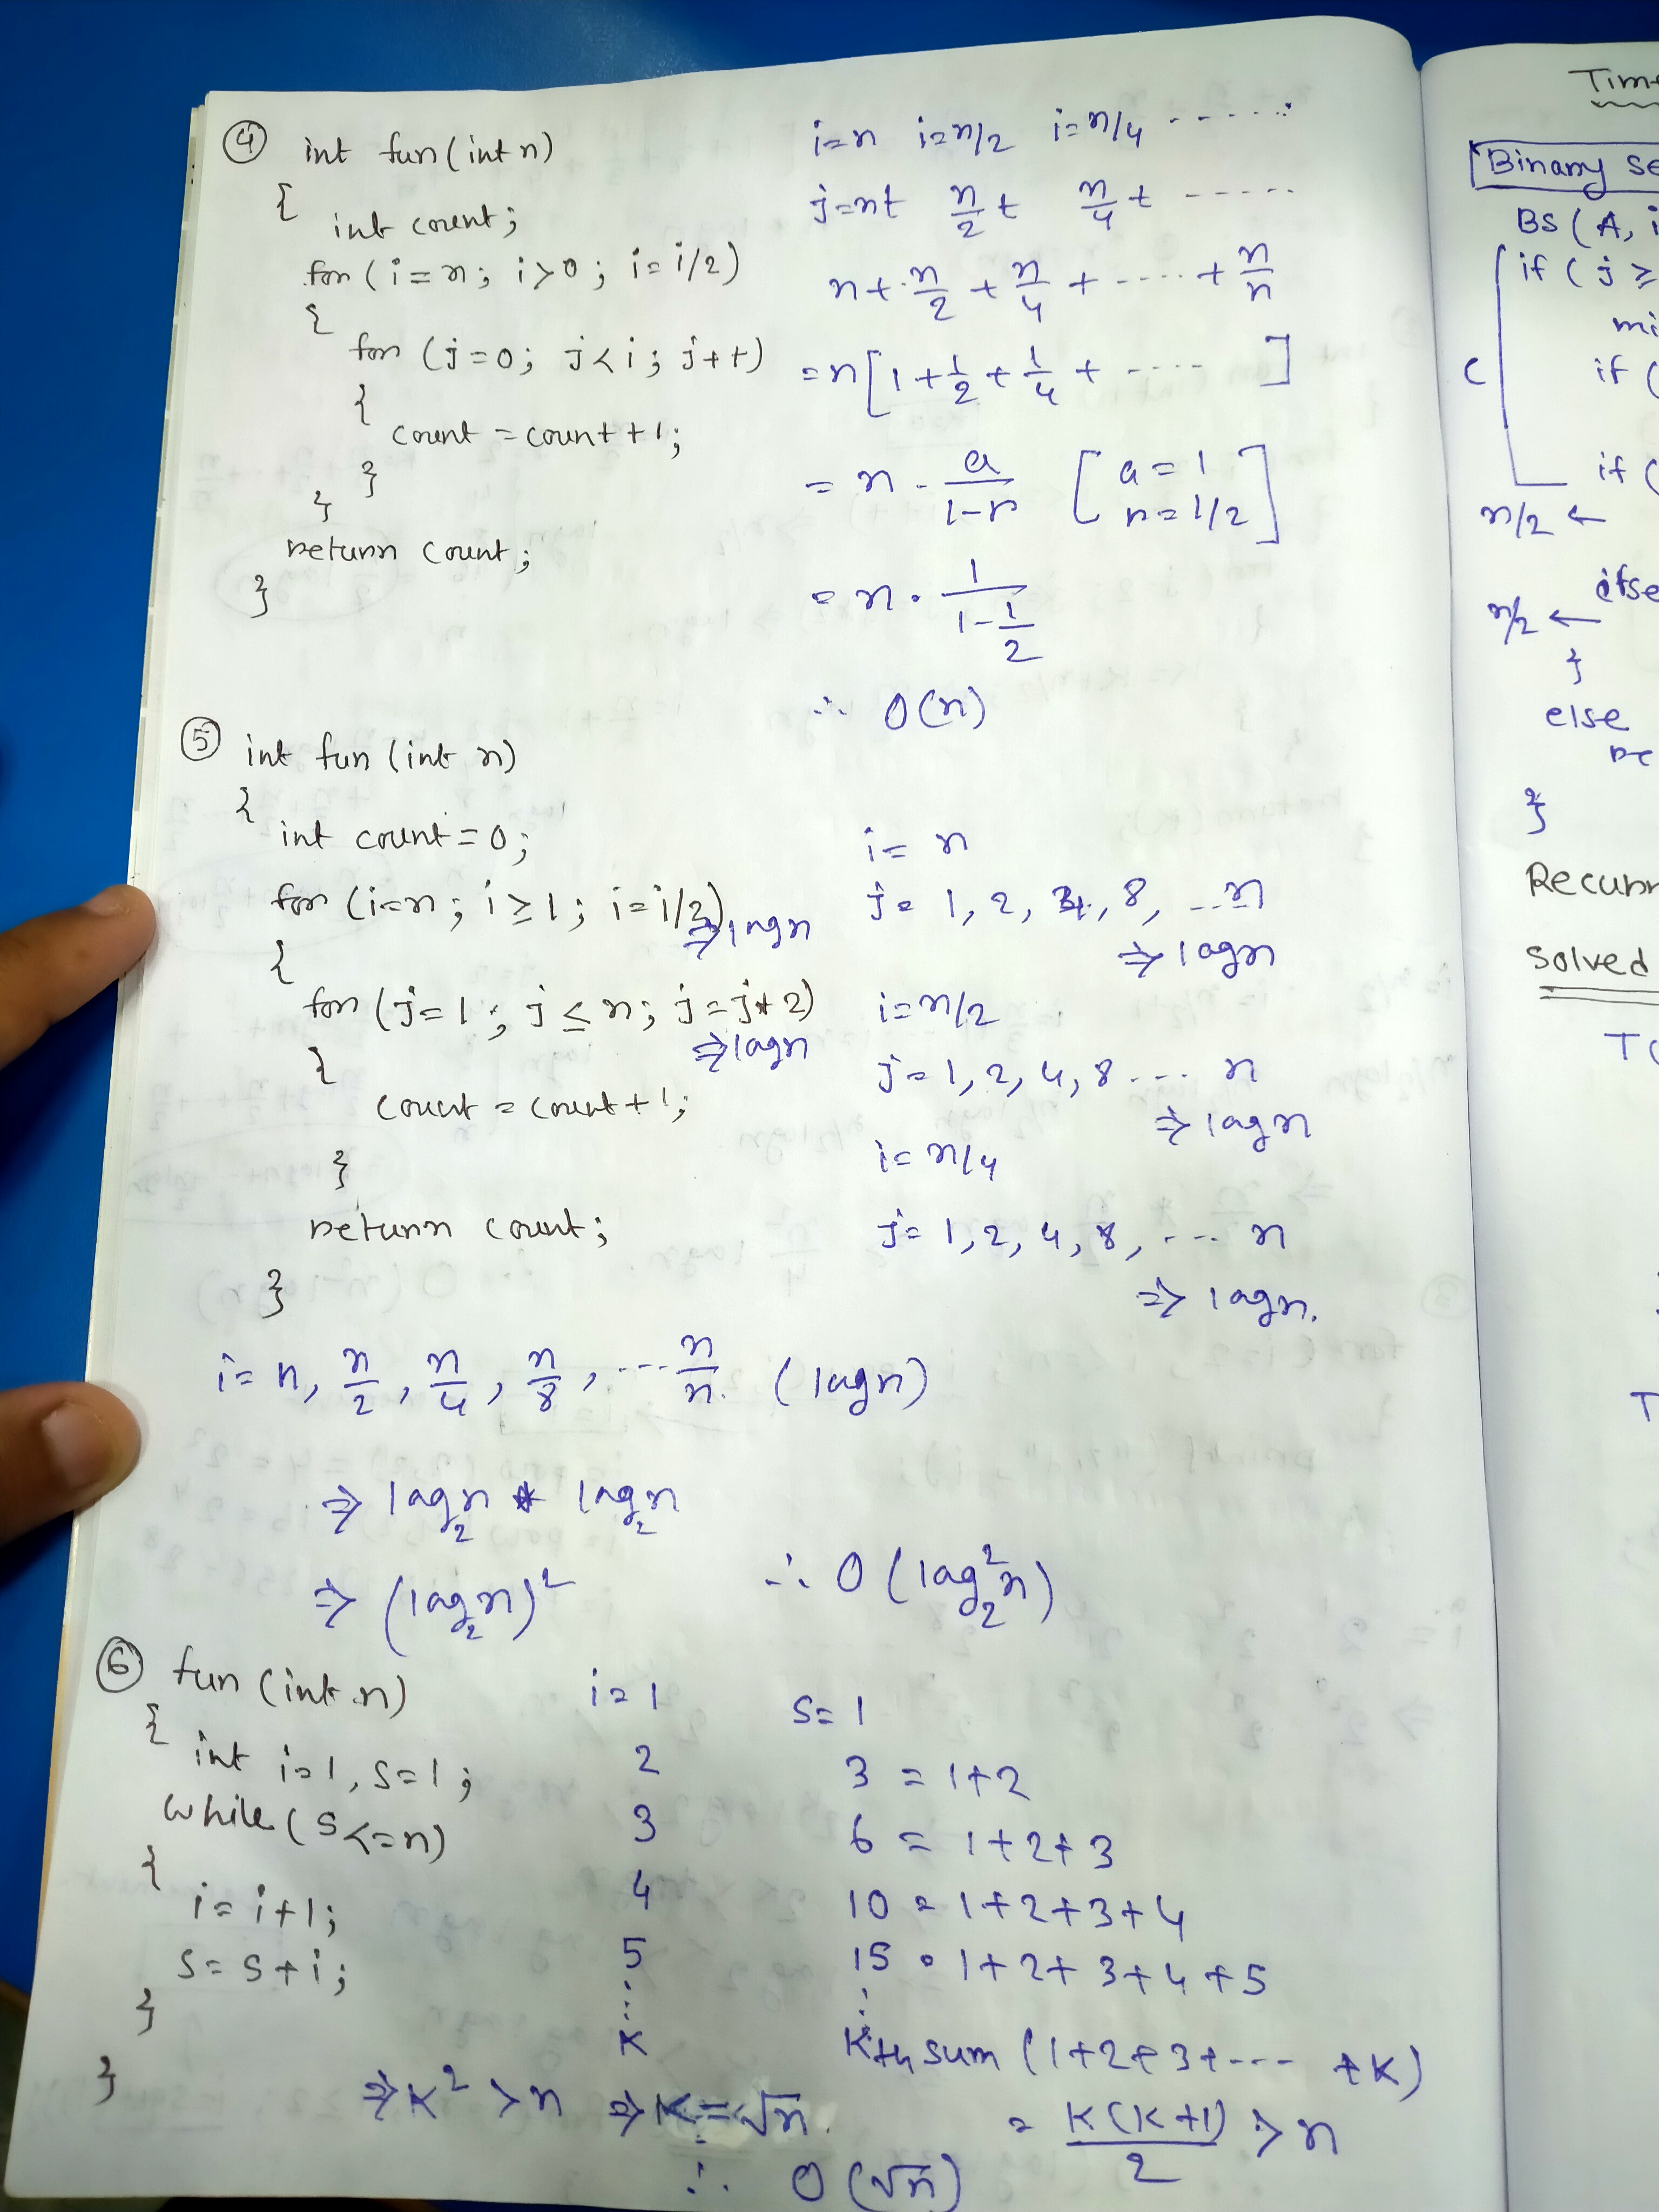 ④ int fun(int n)
{
int count;
for (i = n; i > 0; i = i/2)
{
for (j = 0; j < i; j++)
{
count = count + 1;
}
}
return count;
}
i=n i=n/2 i=n/4 ------
j=n+ n/2 + n/4 + -----
n + n/2 + n/4 + ---- + n/n
= n[1 + 1/2 + 1/4 + ---- ]
= n · a/(1-r) [a = 1
r = 1/2]
= n · 1/(1 - 1/2)
∴ O(n)
⑤ int fun (int n)
{
int count = 0;
for (i=n; i ≥ 1; i = i/2) ⇒ logn
{
for (j=1; j ≤ n; j=j*2) ⇒ logn
{
count = count + 1;
}
return count;
}
i = n
j = 1, 2, 4, 8, ... n
⇒ logn
i = n/2
j = 1, 2, 4, 8 ---- n
⇒ logn
i = n/4
j = 1, 2, 4, 8, --- n
⇒ logn.
i = n, n/2, n/4, n/8, --- n/n. (logn)
⇒ log₂n * log₂n
⇒ (log₂n)² ∴ O(log₂²n)
⑥ fun (int n)
{
int i=1, s=1;
while (s<=n)
{
i = i+1;
s = s+i;
}
}
i = 1 s = 1
2 3 = 1+2
3 6 = 1+2+3
4 10 = 1+2+3+4
5 15 = 1+2+3+4+5
⋮ ⋮
K Kth sum (1+2+3+---- +K)
= K(K+1)/2 > n
⇒ K² > n ⇒ K = √n.
∴ O(√n)
Binary
BS(A, i
if (j ≥
mi
if (
C
if (
n/2 ←
n/2 ←
}
else
}
Solved
T(
T